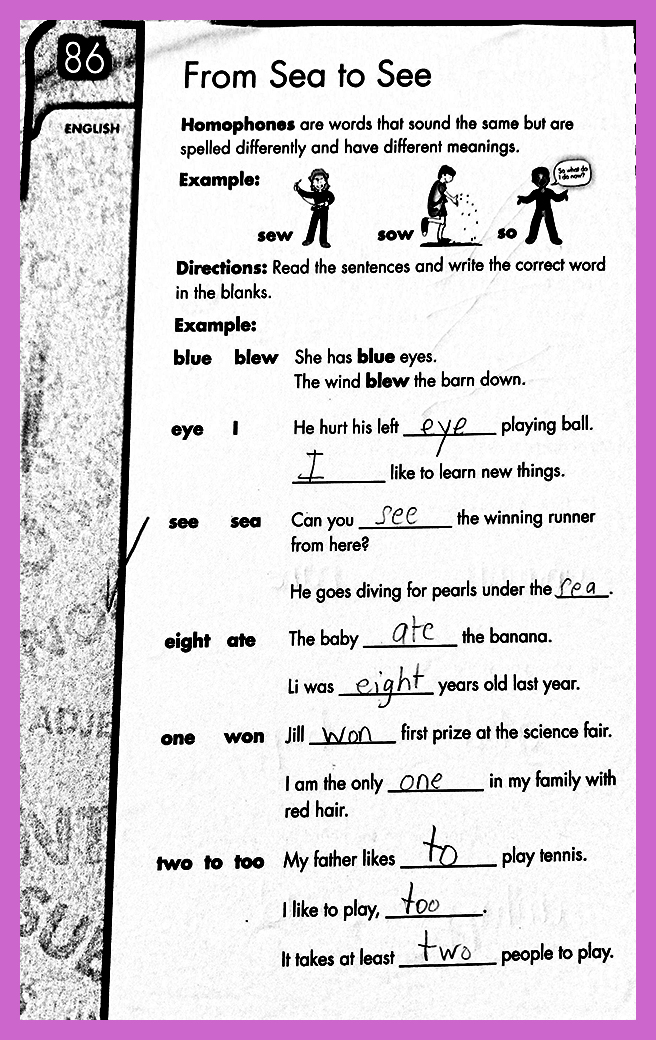 86
ENGLISH
From Sea to See
Homophones are words that sound the same but are
spelled differently and have different meanings.
Example:
So what do
I do now?
sew sow so
Directions: Read the sentences and write the correct word
in the blanks.
Example:
blue blew She has blue eyes.
The wind blew the barn down.
eye I He hurt his left eye playing ball.
I like to learn new things.
see sea Can you see the winning runner
from here?
He goes diving for pearls under the sea.
eight ate The baby ate the banana.
Li was eight years old last year.
one won Jill won first prize at the science fair.
I am the only one in my family with
red hair.
two to too My father likes to play tennis.
I like to play, too.
It takes at least two people to play.